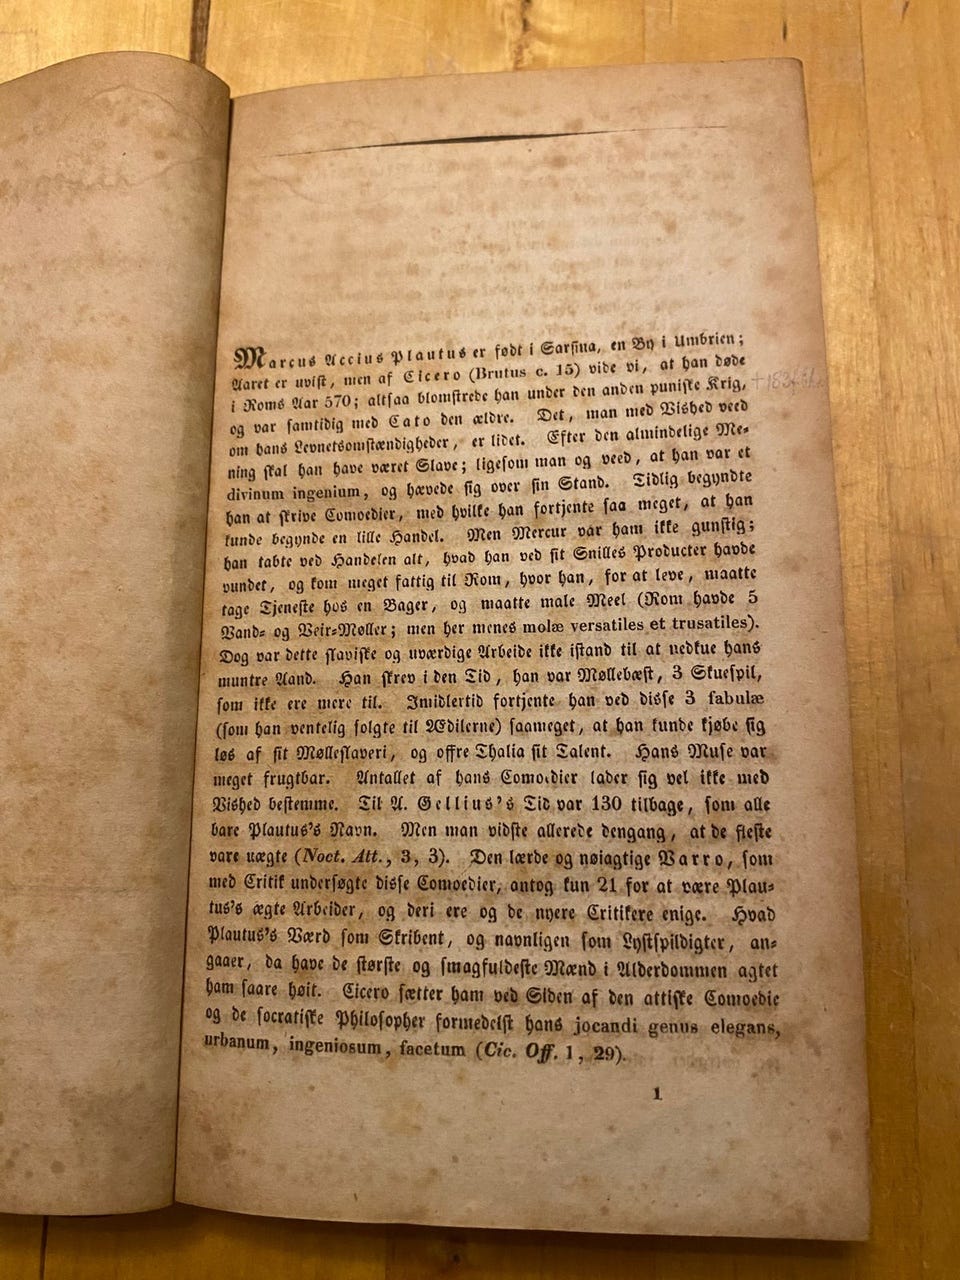 Marcus Accius Plautus er født i Sarsina, en By i Umbrien;
Aaret er uvist, men af Cicero (Brutus c. 15) vide vi, at han døde
i Roms Aar 570; altsaa blomstrede han under den anden puniske Krig,
og var samtidig med Cato den ældre. Det, man med Vished veed
om hans Levnetsomstændigheder, er lidet. Efter den almindelige Me-
ning skal han have været Slave; ligesom man og veed, at han var et
divinum ingenium, og hævede sig over sin Stand. Tidlig begyndte
han at skrive Comoedier, med hvilke han fortjente saa meget, at han
kunde begynde en lille Handel. Men Mercur var ham ikke gunstig;
han tabte ved Handelen alt, hvad han ved sit Snilles Producter havde
vundet, og kom meget fattig til Rom, hvor han, for at leve, maatte
tage Tjeneste hos en Bager, og maatte male Meel (Rom havde 5
Vand- og Veir-Møller; men her menes molæ versatiles et trusatiles).
Dog var dette slaviske og uværdige Arbeide ikke istand til at nedkue hans
muntre Aand. Han skrev i den Tid, han var Møllebæst, 3 Skuespil,
som ikke ere mere til. Imidlertid fortjente han ved disse 3 fabulæ
(som han ventelig solgte til Ædilerne) saameget, at han kunde kjøbe sig
løs af sit Mølleslaveri, og offre Thalia sit Talent. Hans Muse var
meget frugtbar. Antallet af hans Comoedier lader sig vel ikke med
Vished bestemme. Til A. Gellius's Tid var 130 tilbage, som alle
bare Plautus's Navn. Men man vidste allerede dengang, at de fleste
vare uægte (Noct. Att., 3, 3). Den lærde og nøiagtige Varro, som
med Critik undersøgte disse Comoedier, antog kun 21 for at være Plau-
tus's ægte Arbeider, og deri ere og de nyere Critikere enige. Hvad
Plautus's Værd som Skribent, og navnligen som Lystspildigter, an-
gaaer, da have de største og smagfuldeste Mænd i Alderdommen agtet
ham saare høit. Cicero sætter ham ved Siden af den attiske Comoedie
og de socratiske Philosopher formedelst hans jocandi genus elegans,
urbanum, ingeniosum, facetum (Cic. Off. 1, 29).
1